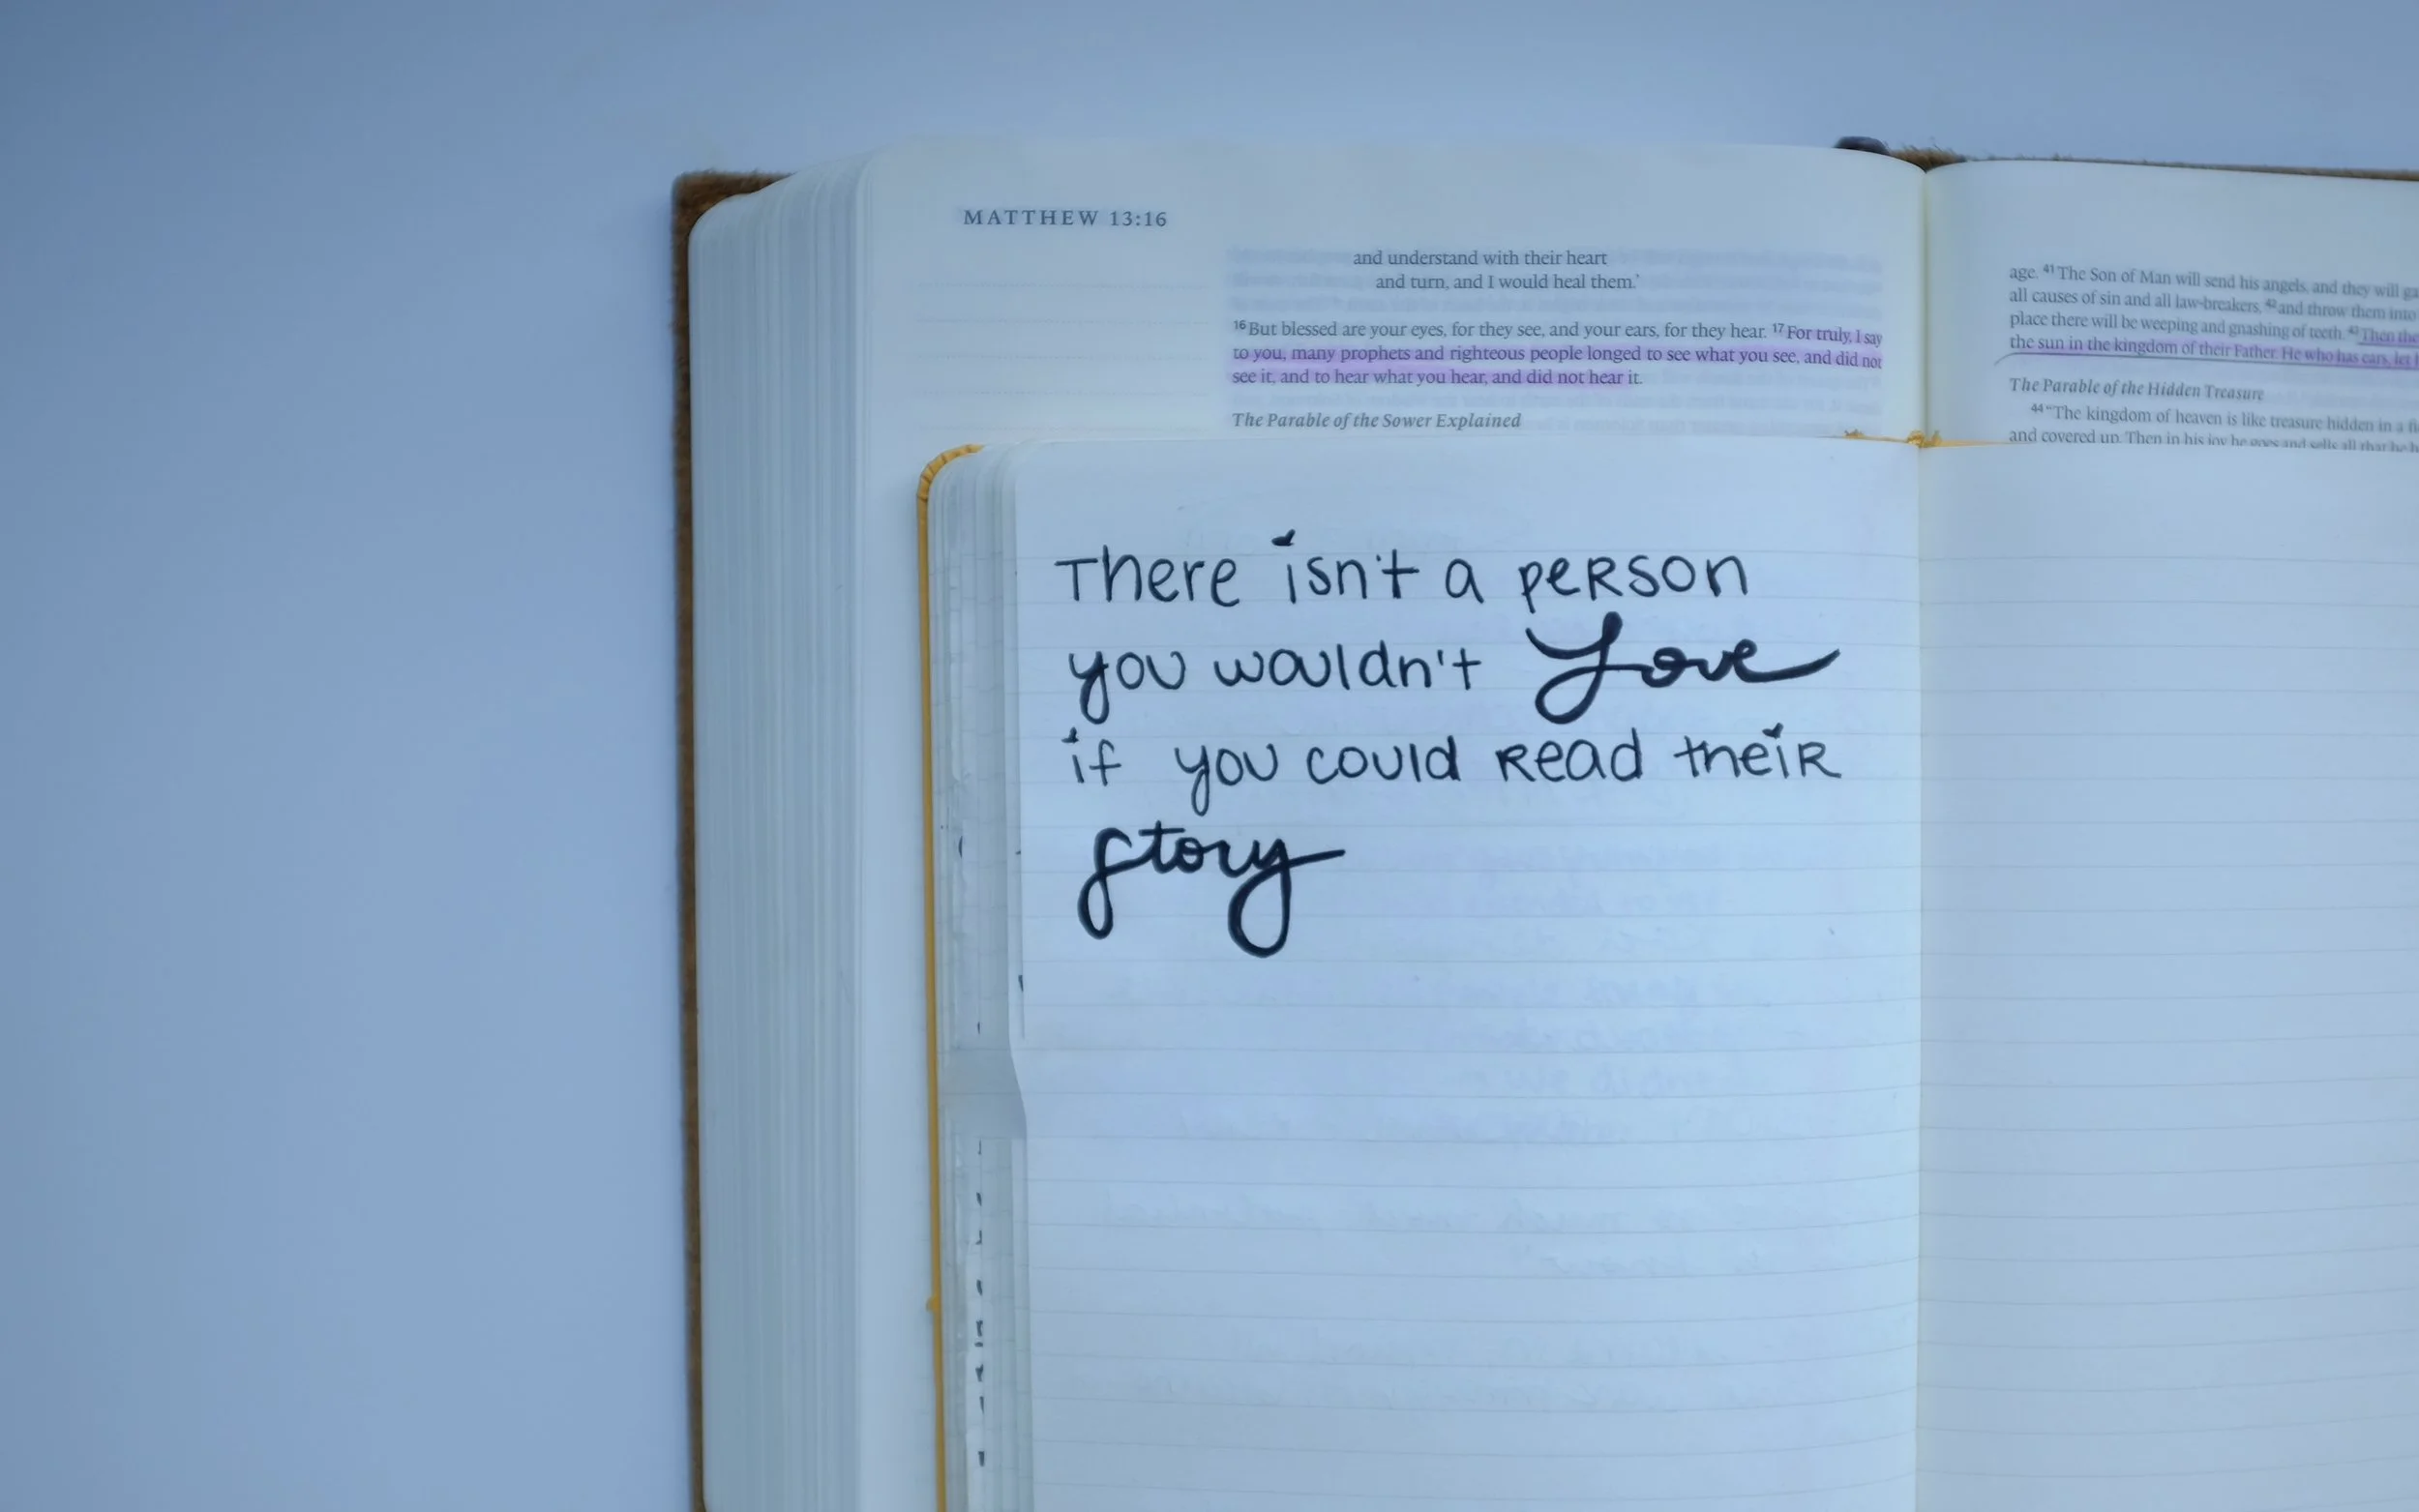 MATTHEW 13:16
and understand with their heart
and turn, and I would heal them.'
16 But blessed are your eyes, for they see, and your ears, for they hear. 17 For truly, I say
to you, many prophets and righteous people longed to see what you see, and did not
see it, and to hear what you hear, and did not hear it.
The Parable of the Sower Explained
There isn't a person
you wouldn't Love
if you could read their
story
age. 41 The Son of Man will send his angels, and they will
all causes of sin and all law-breakers, 42 and throw them into
place there will be weeping and gnashing of teeth. 43 Then the
the sun in the kingdom of their Father. He who has ears, let
The Parable of the Hidden Treasure
44 "The kingdom of heaven is like treasure hidden in a
and covered up. Then in his joy he goes and sells all that he